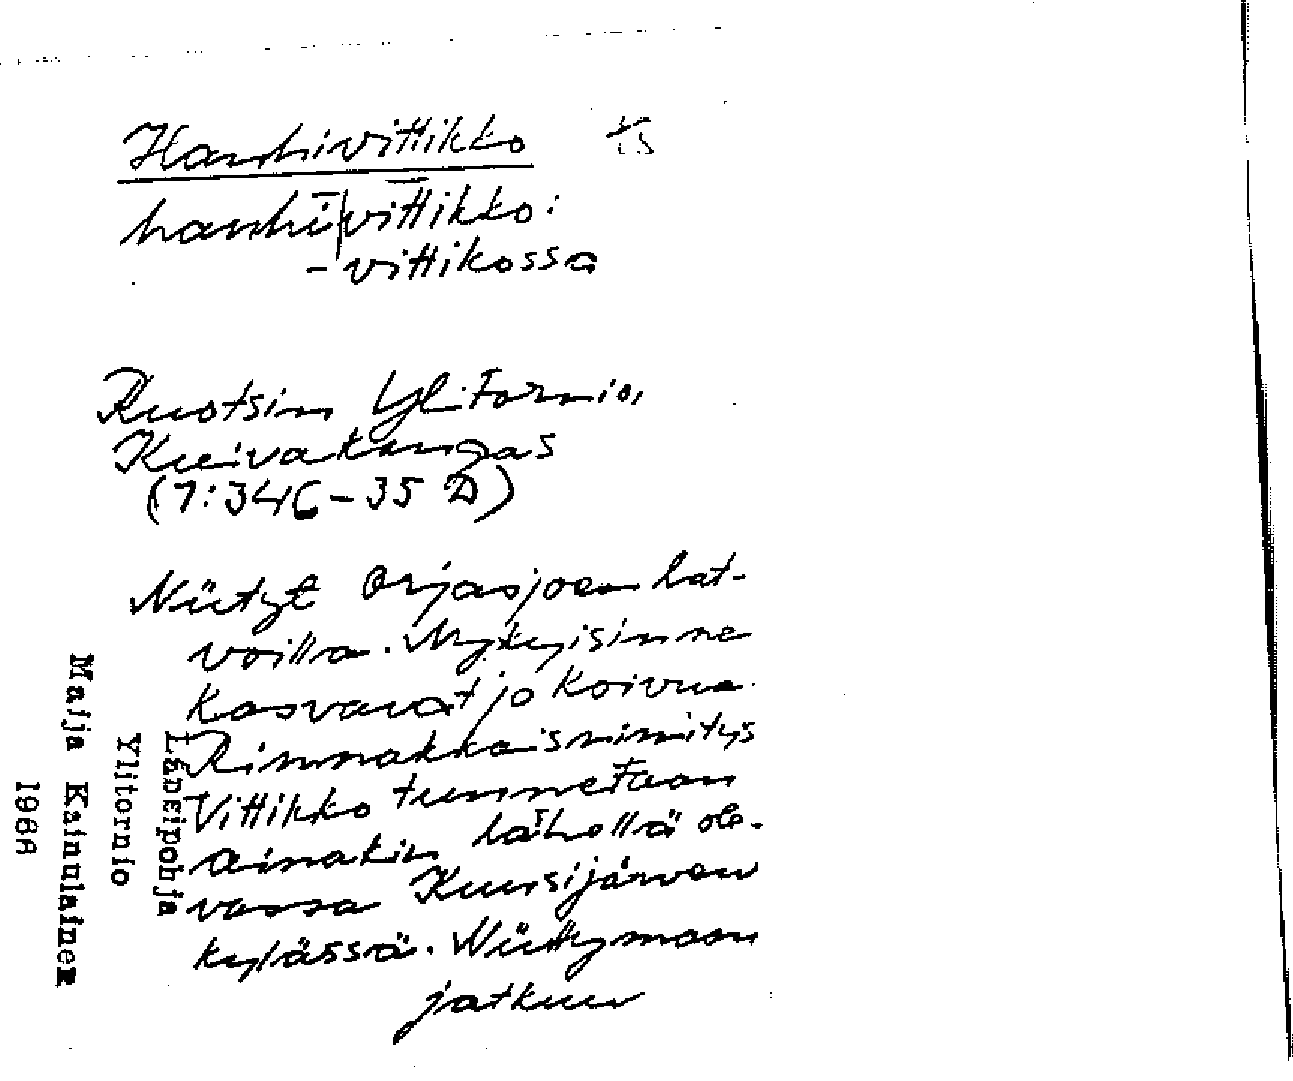 Hanhivittikko
hanhi|vittikko:
-vittikossa
Ruotsin Ylitornio,
Kuivakangas
(7:34C-35 D)
Niityt Orjasjoen lat-
voilla. Nykyisinne
kasvavat jo koivua.
Rinnakkaisnimitys
Vittikko tunnetaan
ainakin lähellä ole-
vassa Kuusijärven
kylässä. Niittymaan
jatkuu
Länsipohja
Ylitornio
Maija Kainulainen
1988